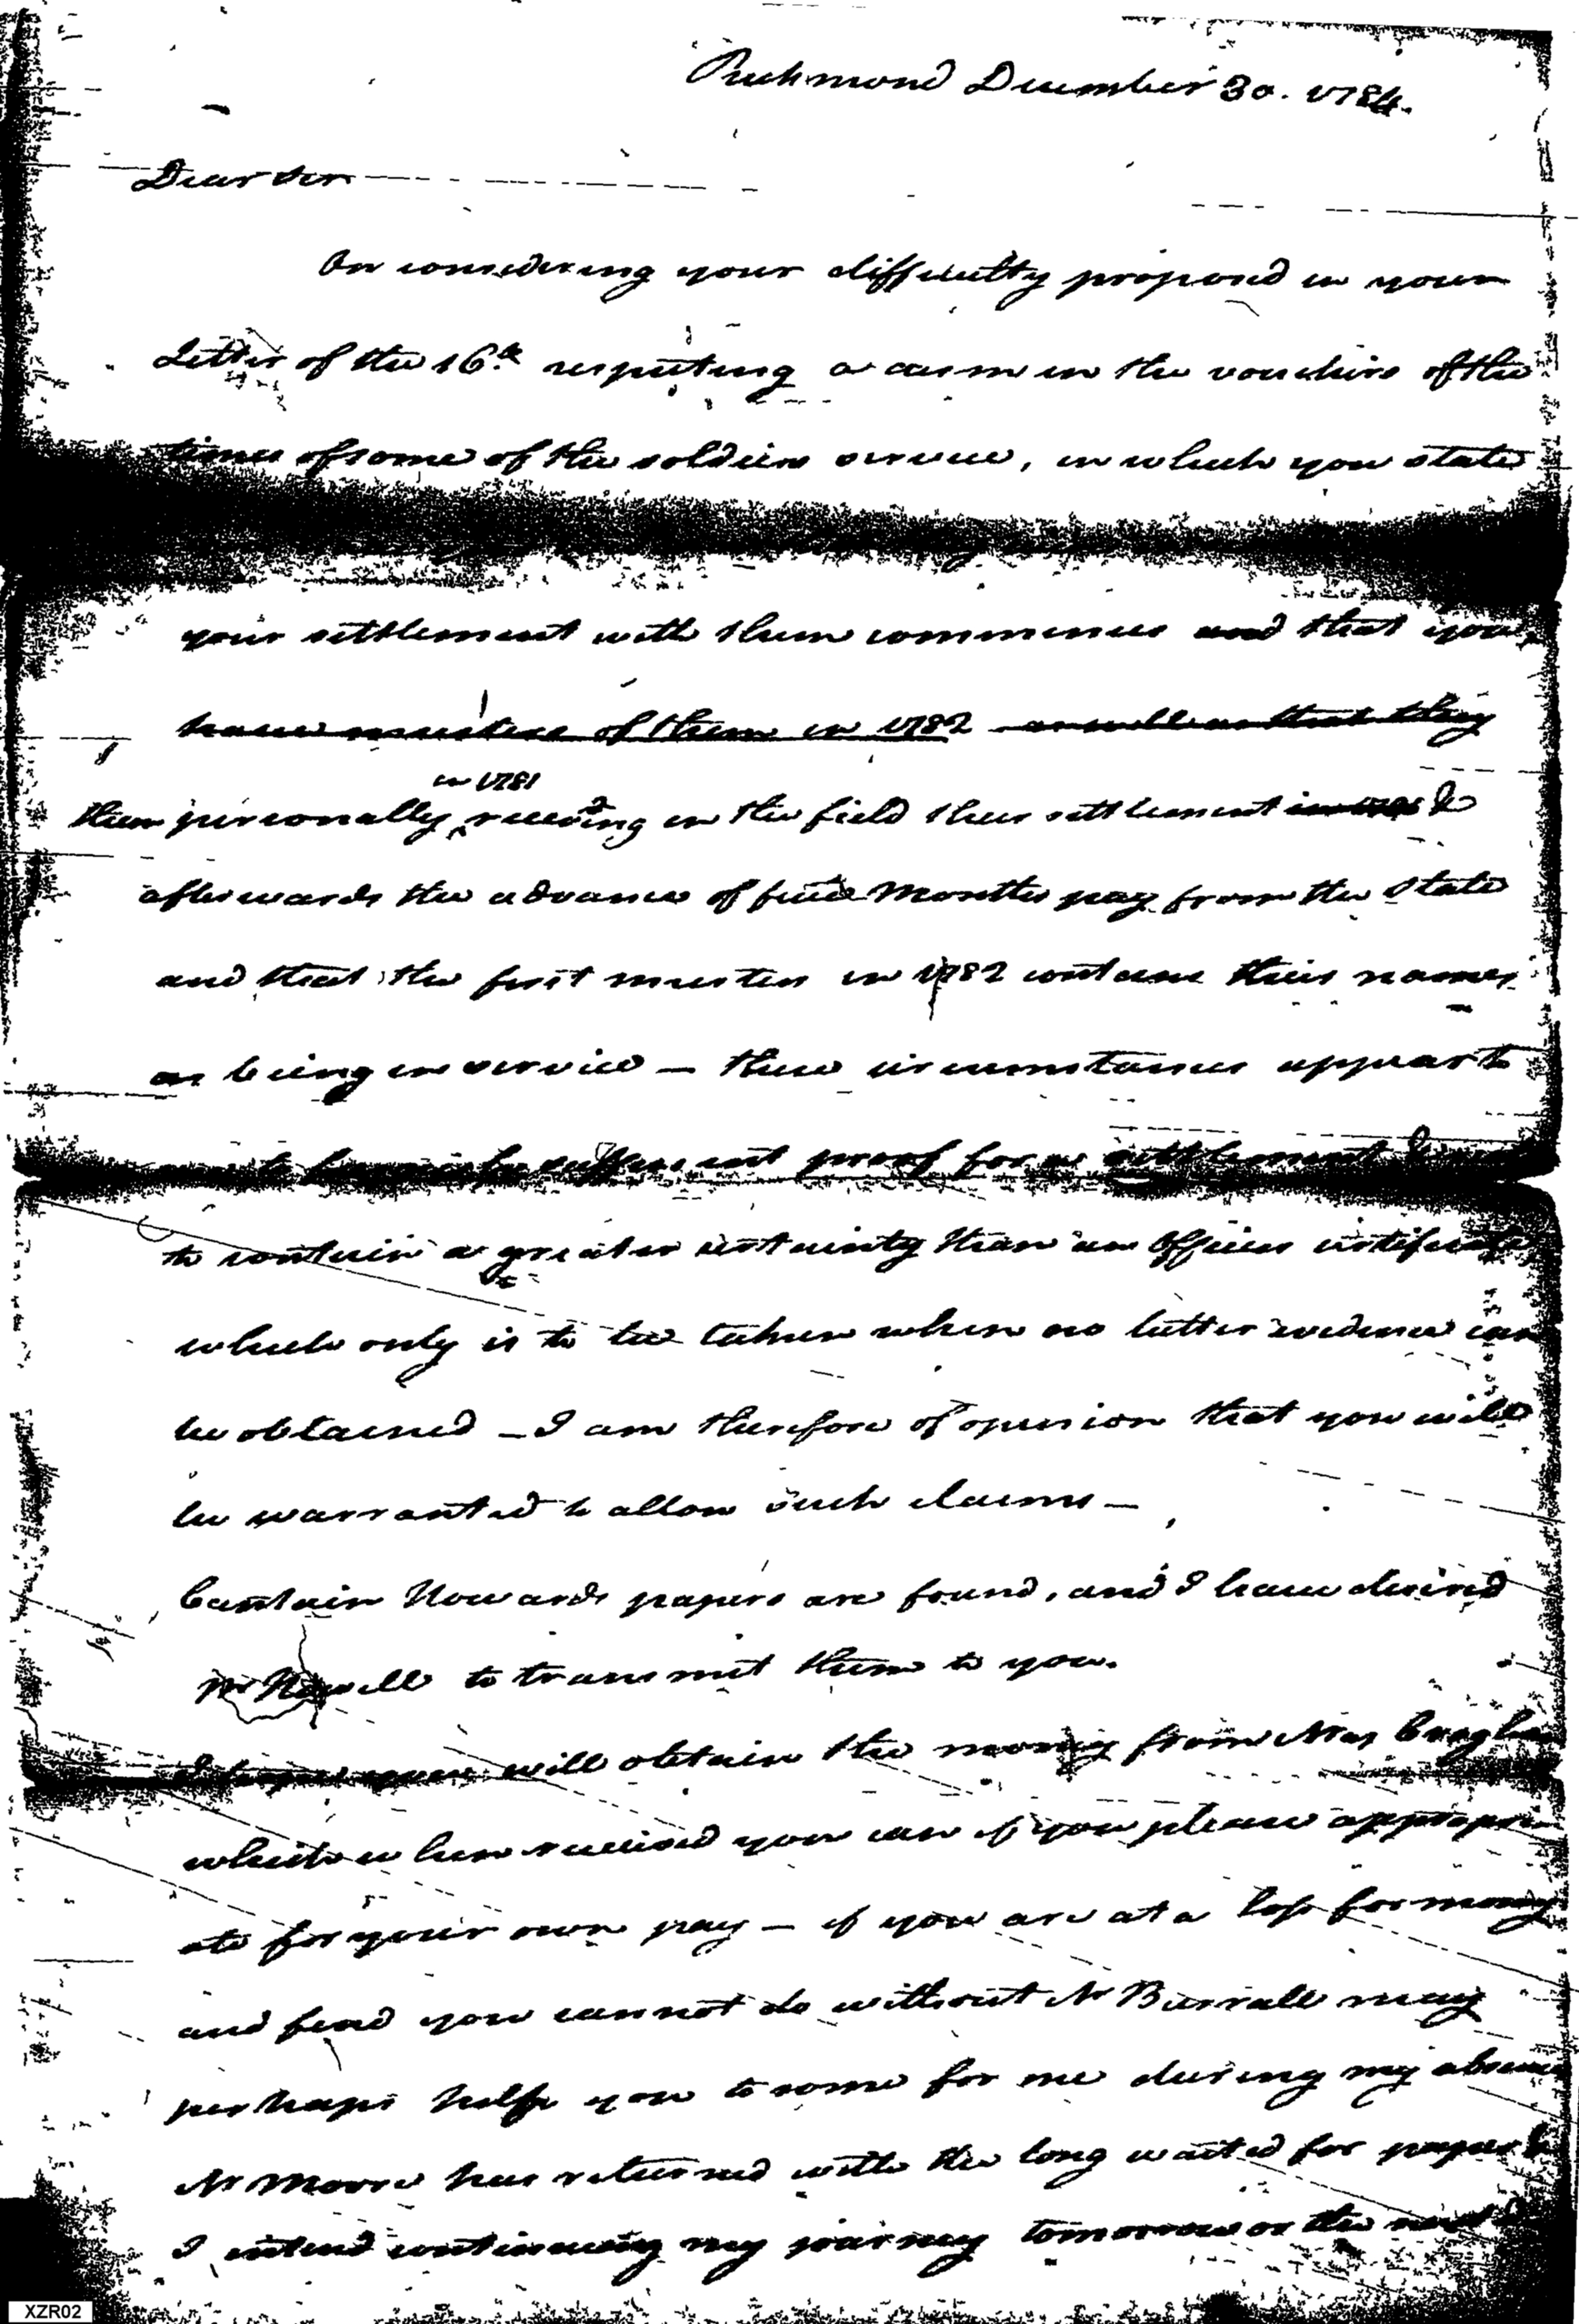 Richmond December 30. 1784.
Dear Sir
On considering your difficulty proposed in your
Letter of the 16th respecting a chasm in the vouchers of the
times of some of the soldiers service, in which you state
your settlement with them commences and that you
have musters of them in 1782 as well as that they
in 1781
them personally receiving in the field their settlement &
afterwards the advance of five Months pay from the State
and that the first muster in 1782 contains their names
as being in service — these circumstances appear to
sufficient proof for a settlement &
to contain a greater certainty than an Officers certificate
which only is to be taken when no better evidence can
be obtained — I am therefore of opinion that you will
be warranted to allow such claims —
Captain Howards papers are found, and I have desired
Mr Howell to transmit them to you.
you will obtain the money from
which when received you can if you please appropri
ate for your own pay — if you are at a loss for money
and find you cannot do without Mr Burrall may
perhaps help you to some for me during my absence
Mr Moore has returned with the long waited for papers &
I intend continuing my journey tomorrow or the next
XZR02